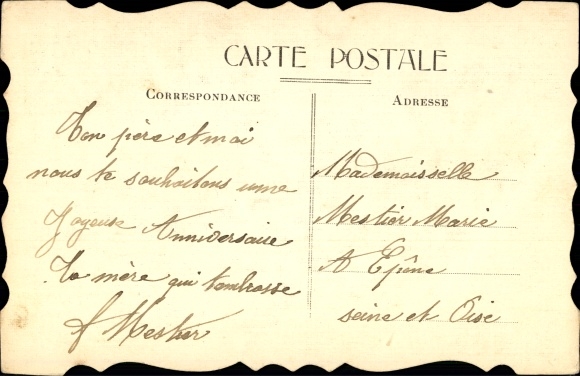 CARTE POSTALE
CORRESPONDANCE
ADRESSE
Ton père et moi
nous te souhaitons une
Joyeuse Anniversaire
Ta mère qui t'embrasse
Mestier
Mademoisselle
Mestier Marie
A Epône
seine et Oise